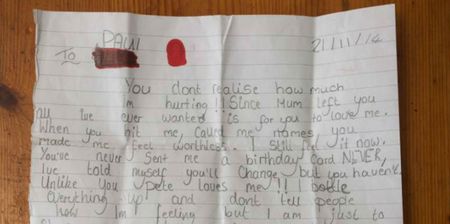 To PAUL 21/11/14
You dont realise how much
I'm hurting!! Since Mum left you
all I've ever wanted is for you to love me.
When you hit me, called me names, you
made me feel worthless. I still feel it now.
You've never sent me a birthday card NEVER,
I've told myself you'll change but you haven't.
Unlike you Pete loves me!! I bottle
everything up and dont tell people
how I'm feeling but I am just to